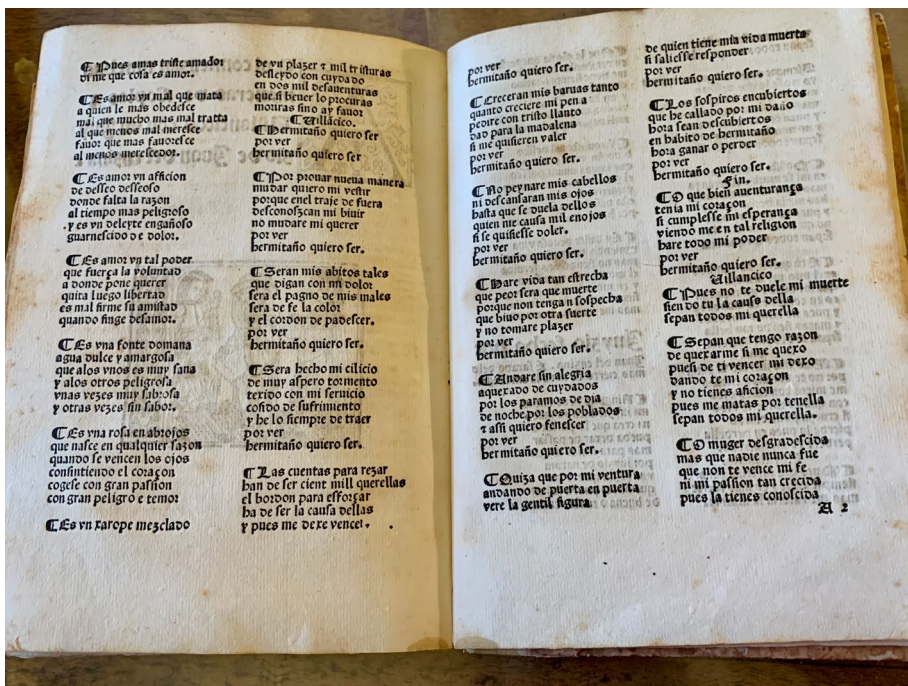 ¶ Pues amas triste amador
di me que cosa es amor.
¶ Es amor vn mal que mata
a quien le mas obedesce
mal que mucho mas mal tratta
al que menos mal meresce
fauor que mas fauoresce
al menos merescedor.
¶ Es amor vn aficion
de desseo desseoso
donde falta la razon
al tiempo mas peligroso
y es vn deleyte engañoso
guarnescido de dolor.
¶ Es amor vn tal poder
que fuerça la voluntad
a donde pone querer
quita luego libertad
es mal firme su amistad
quando finge desamor.
¶ Es vna fonte domana
agua dulce y amargosa
que alos vnos es muy sana
y alos otros peligrosa
vnas vezes muy sabrosa
y otras vezes sin sabor.
¶ Es vna rosa en abrojos
que nasce en qualquier sazon
quando se vencen los ojos
consintiendo el coraçon
cogese con gran passion
con gran peligro e temor
¶ Es vn xarope mezclado
de vn plazer ⁊ mil tristuras
desleydo con cuydado
en dos mil desauenturas
que si beuer lo procuras
moriras sino ay fauor
¶ Uillācico.
¶ Hermitaño quiero ser
por ver
hermitaño quiero ser
¶ Por prouar nueua manera
mudar quiero mi vestir
porque enel traje de fuera
desconoscan mi biuir
no mudare mi querer
por ver
hermitaño quiero ser.
¶ Seran mis abitos tales
que digan con mi dolor
sera el pagno de mis males
sera de fe la color
y el cordon de padescer.
por ver
hermitaño quiero ser.
¶ Sera hecho mi cilicio
de muy aspero tormento
texido con mi seruicio
cosido de sufrimiento
y he lo siempre de traer
por ver
hermitaño quiero ser.
¶ Las cuentas para rezar
han de ser cient mill querellas
el bordon para esforçar
ha de ser la causa dellas
y pues me dexe vencer.
por ver
hermitaño quiero ser.
¶ Creceran mis baruas tanto
quanto creciere mi pena
pedire con tristo llanto
dad para la madalena
si me quisieren valer
por ver
hermitaño quiero ser.
¶ No peynare mis cabellos
ni descansaran mis ojos
hasta que se duela dellos
quien me causa mil enojos
si se quisiesse doler.
por ver
hermitaño quiero ser.
¶ Hare vida tan estrecha
que peor sera que muerte
porque non tengan sospecha
que biuo por otra suerte
y no tomare plazer
por ver
hermitaño quiero ser.
¶ Andare sin alegria
aquexado de cuydados
por los paramos de dia
de noche por los poblados
⁊ assi quiero fenescer
por ver
hermitaño quiero ser.
¶ Quiza que por mi ventura
andando de puerta en puerta
vere la gentil figura
de quien tiene mia vida muerta
si saliesse responder
por ver
hermitaño quiero ser.
¶ Los sospiros encubiertos
que he callado por mi daño
hora sean descubiertos
en habito de hermitaño
hora ganar o perder
por ver
hermitaño quiero ser.
Fin.
¶ O que bien auenturança
tenia mi coraçon
si cumplesse mi esperança
viendo me en tal religion
hare todo mi poder
por ver
hermitaño quiero ser.
Uillancico
¶ Pues no te duele mi muerte
siendo tu la causa della
sepan todos mi querella
¶ Sepan que tengo razon
de quexarme si me quexo
pues de ti vencer mi dexo
dando te mi coraçon
y no tienes aficion
pues me matas por tenella
sepan todos mi querella.
¶ O muger desgradescida
mas que nadie nunca fue
que non te vence mi fe
ni mi passion tan crecida
pues la tienes conoscida
A 2